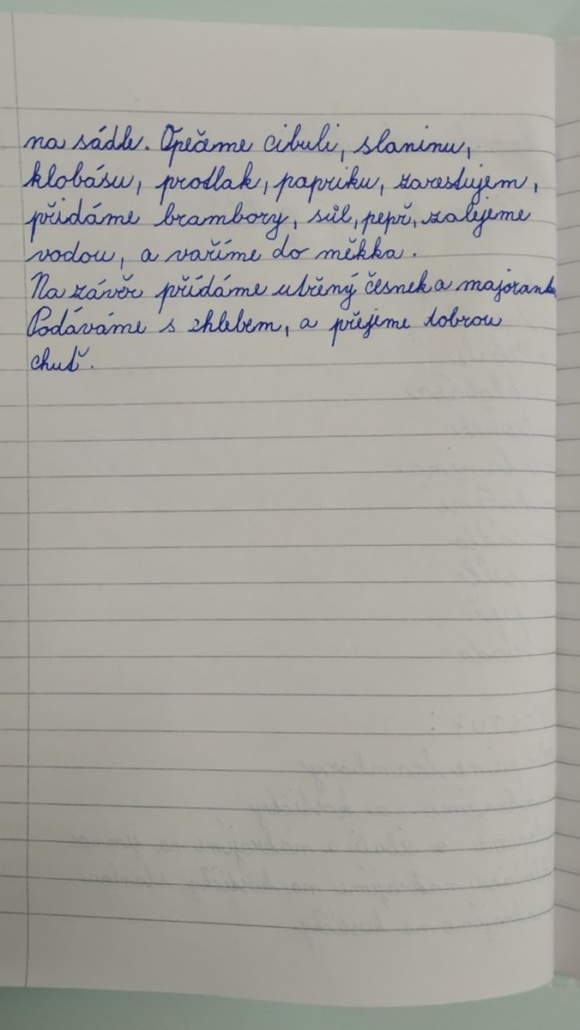 na sádle. Opečeme cibuli, slaninu,
klobásu, protlak, papriku, zarestujem,
přidáme brambory, sůl, pepř, zalejeme
vodou, a vaříme do měkka.
Na závěr přídáme utřený česnek a majoranku
Podáváme s chlebem, a přejeme dobrou
chuť.